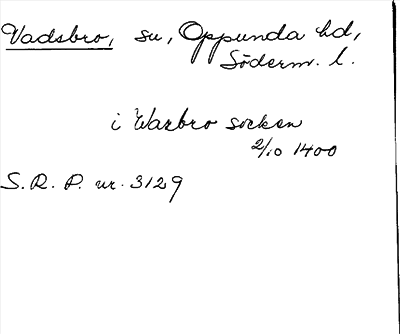 Vadsbro, su, Oppunda hd,
Söderm. l.
i Wazbro socken
2/10 1400
S.R.P. nr. 3129